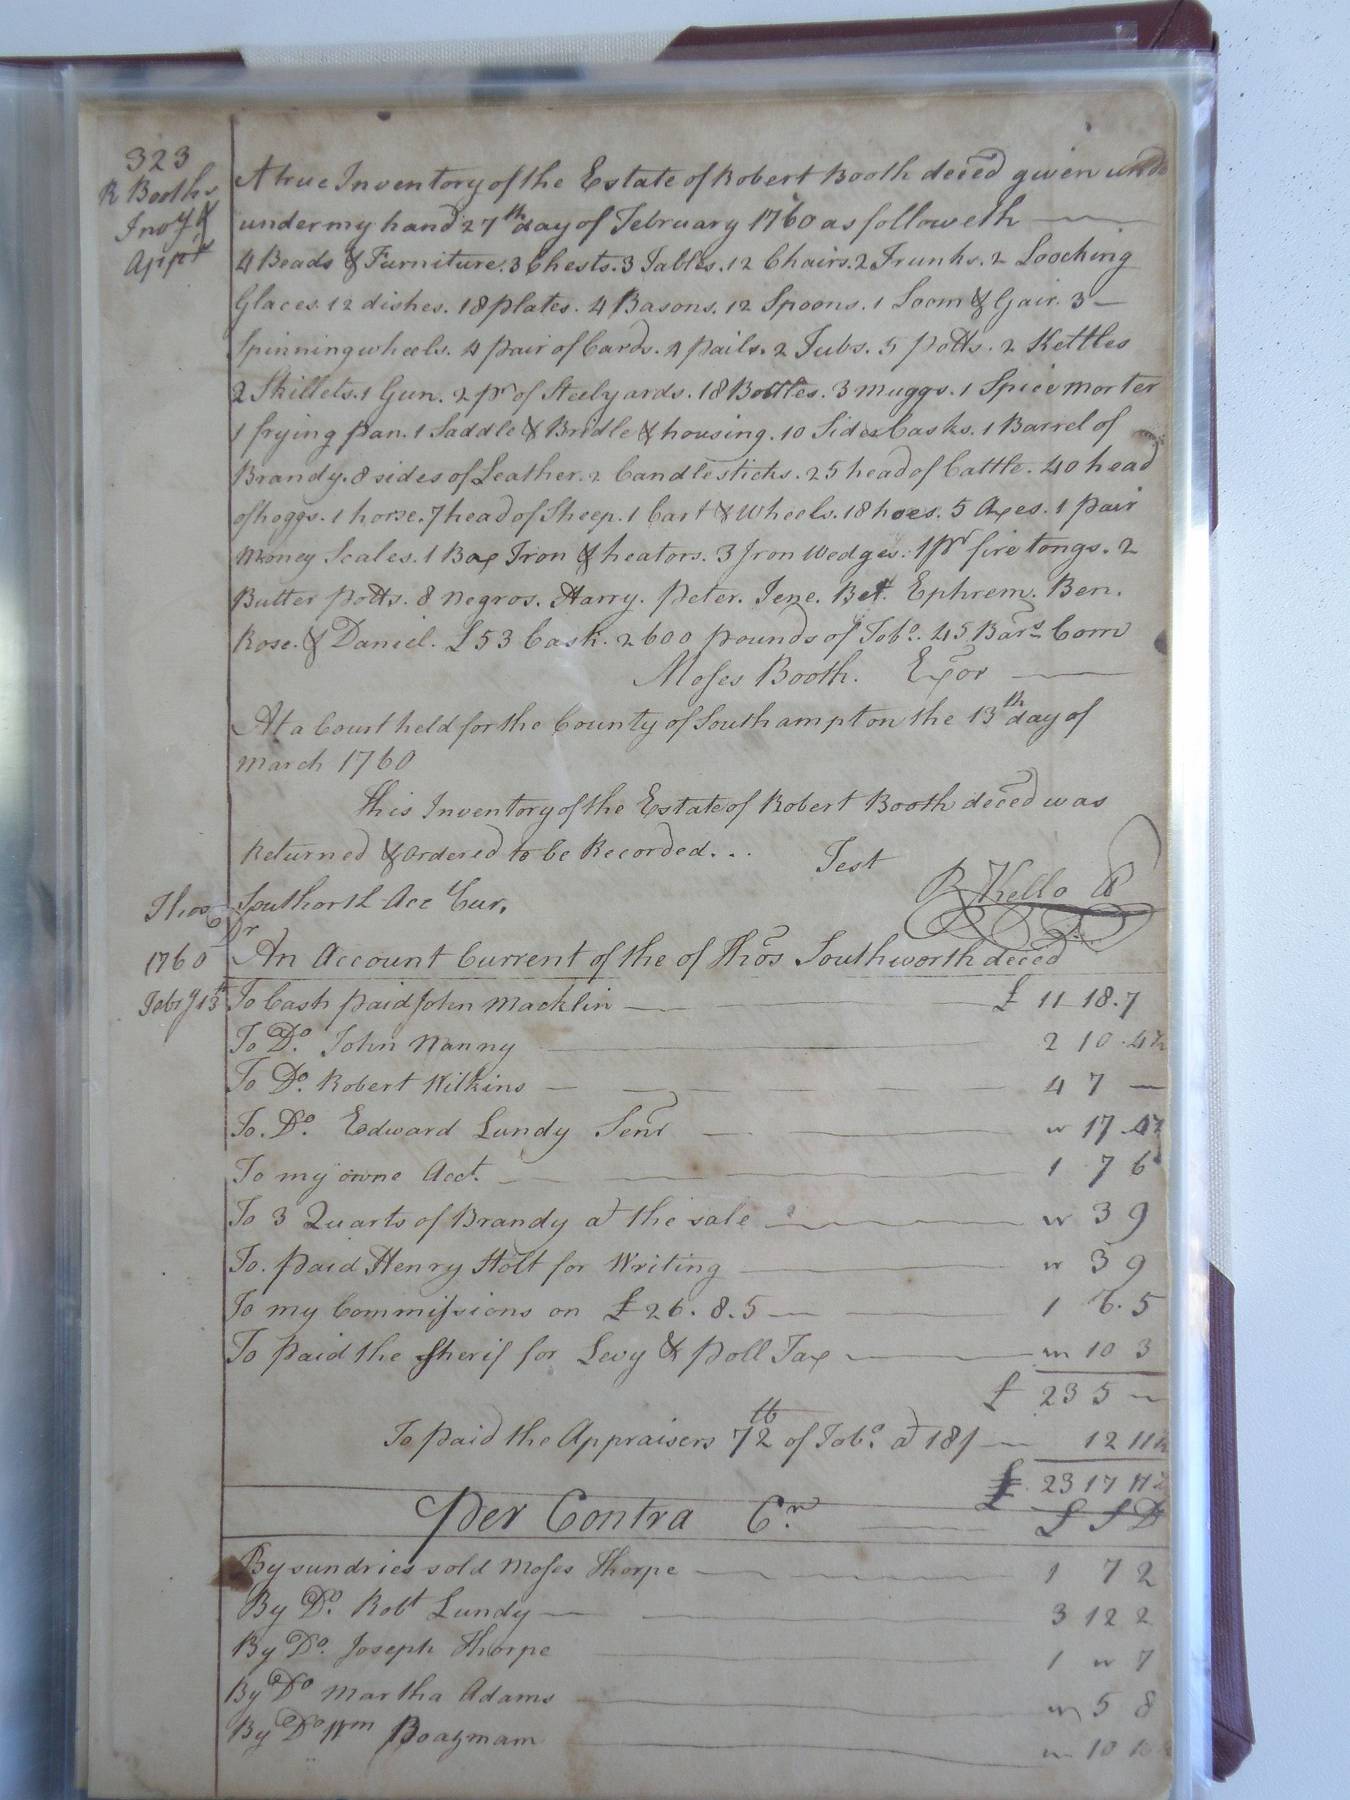 323
R Booths
Invy &
Appt
A true Inventory of the Estate of Robert Booth deced given unde
under my hand 27th day of February 1760 as followeth
4 Beads & Furniture. 3 Chests. 3 Tables. 12 Chairs. 2 Trunks. 2 Looching
Glaces. 12 dishes. 18 plates. 4 Basons. 12 Spoons. 1 Loom & Gair. 3
Spinning wheels. 4 pair of Cards. 2 pails. 2 Tubs. 5 potts. 2 Kettles
2 Skillets. 1 Gun. 2 pr of Steelyards. 18 Bottles. 3 muggs. 1 Spice morter
1 frying pan. 1 Saddle & Bridle & housing. 10 Sider Casks. 1 Barrel of
Brandy. 8 sides of Leather. 2 Candlesticks. 25 head of Cattle. 40 head
of hoggs. 1 horse. 7 head of Sheep. 1 Cart & Wheels. 18 hoes. 5 Axes. 1 pair
Money Scales. 1 Box Iron & heators. 3 Iron Wedges. 1 pr fire tongs. 2
Butter potts. 8 Negros. Harry. Peter. Jene. Bet. Ephrem. Ben.
Rose. & Daniel. £53 Cash. 2600 pounds of Tobo. 45 Bars Corn
Moses Booth. Exor
At a Court held for the County of Southampton the 13th day of
March 1760
This Inventory of the Estate of Robert Booth deced was
Returned & Ordered to be Recorded...
Test
R Kello
Thos Southorth Acc Cur.
Dr
1760 An Account Current of the of Thos Southworth deced
Febry 13th To Cash paid John Macklin £ 11 18. 7
To Do. John Nanny 2 10. 4½
To Do. Robert Wilkins 4 7 —
To. Do. Edward Lundy Senr " 17. 4½
To my owne Acct. 1 7 6
To 3 Quarts of Brandy at the sale " 3 9
To. paid Henry Holt for Writing " 3 9
To my Commissions on £ 26. 8. 5 1 6. 5
To paid the Sherif for Levy & poll Tax " 10 3
£ 23 5 —
To paid the Appraisers 72 lb of Tobo. at 18/ 12 11½
£ 23 17 11½
Per Contra Cr. £ S D
By sundries sold Moses Thorpe 1 7 2
By Do. Robt Lundy 3 12 2
By Do. Joseph Thorpe 1 " 7
By Do Martha Adams " 5 8
By Do Wm Boazmam " 10